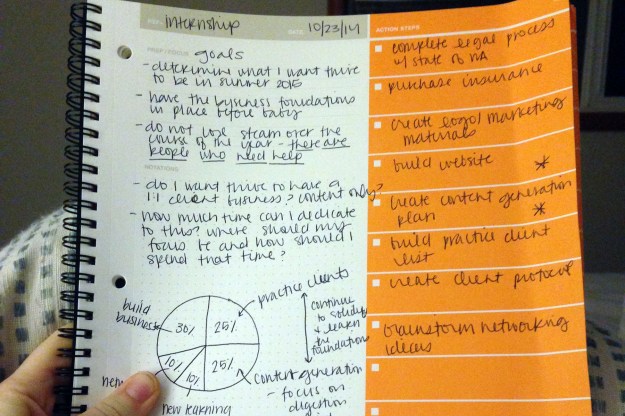 internship
DATE 10/23/14
goals
- determine what I want thrive
to be in summer 2015
- have the business foundations
in place before baby
- do not lose steam over the
course of the year - there are
people who need help
- do I want thrive to have a
1:1 client business? content only?
- how much time can I dedicate
to this? where should my
focus be and how should I
spend that time?
practice clients
build
business
30%
25%
10%
10%
25%
continue
to solidify
& learn
the
foundation
content generation
- focus on
digestion
new learning
ACTION STEPS
complete legal process
w/ state of
purchase insurance
create logo/marketing
materials
build website *
create content generation
plan *
build practice client
list
create client protocol
brainstorm networking
ideas